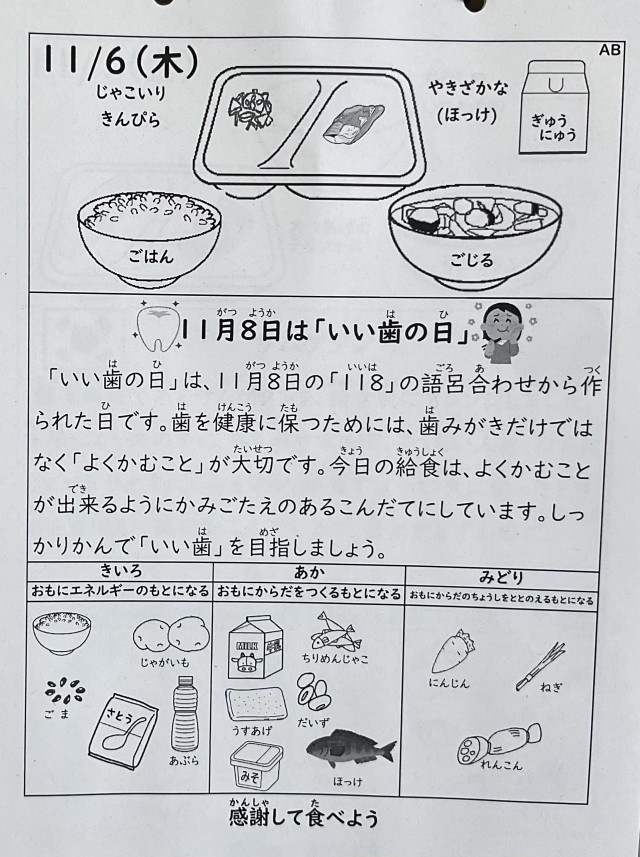 AB
11/6(木)
じゃこいり
きんぴら
やきざかな
(ほっけ)
ぎゅう
にゅう
ごはん
ごじる
11月8日は「いい歯の日」
「いい歯の日」は、11月8日の「118」の語呂合わせから作
られた日です。歯を健康に保つためには、歯みがきだけでは
なく「よくかむこと」が大切です。今日の給食は、よくかむこと
が出来るようにかみごたえのあるこんだてにしています。しっ
かりかんで「いい歯」を目指しましょう。
きいろ
おもにエネルギーのもとになる
じゃがいも
ごま
さとう
あぶら
あか
おもにからだをつくるもとになる
MILK
ちりめんじゃこ
うすあげ
だいず
みそ
ほっけ
みどり
おもにからだのちょうしをととのえるもとになる
にんじん
ねぎ
れんこん
感謝して食べよう